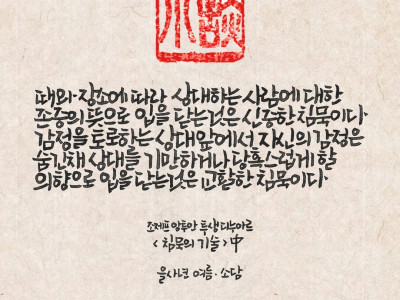 때와·장소에 따라 상대하는 사람에 대한
존중의 뜻으로 입을 닫는것은 신중한 침묵이다·
감정을 토로하는 상대앞에서 자신의 감정은
숨긴채 상대를 기만하거나 당혹스럽게 할
의향으로 입을 닫는것은 교활한 침묵이다·
조제프 앙투안 투생 디누아르
<침묵의 기술> 中
을사년 여름·소담